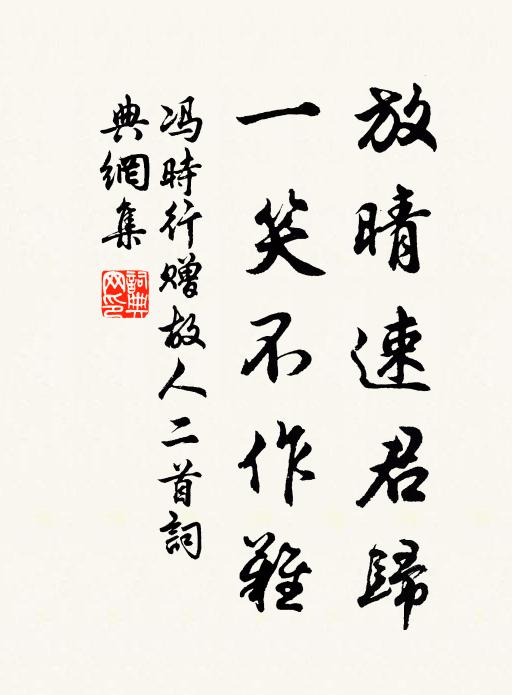 放晴速君歸
一笑不作難
冯時行赠故人二首詞
典網集
詞典網印